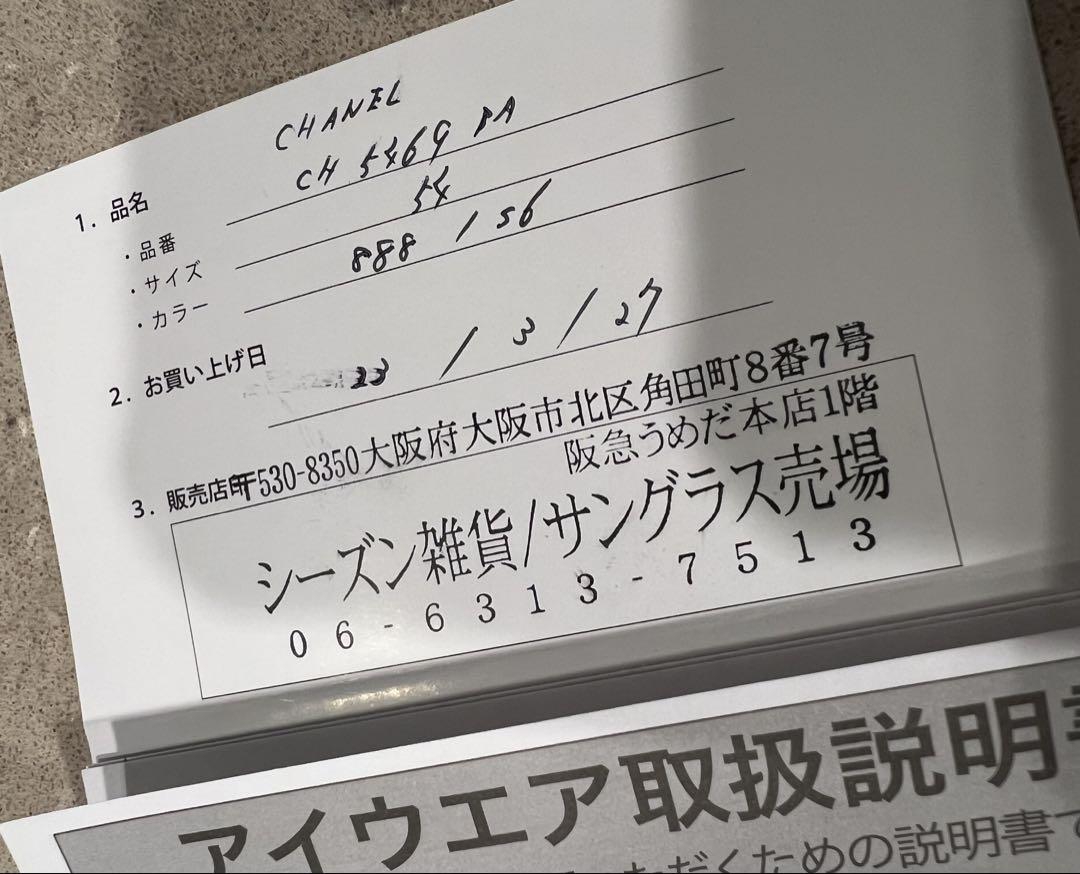 CHANEL
1. 品名
CH 5469 DA
・品番
54
・サイズ
888 / S6
・カラー
2. お買い上げ日
23 / 3 / 27
〒530-8350大阪府大阪市北区角田町8番7号
3. 販売店印
阪急うめだ本店1階
シーズン雑貨/サングラス売場
06-6313-7513
アイウエア取扱説明書
ただくための説明書で